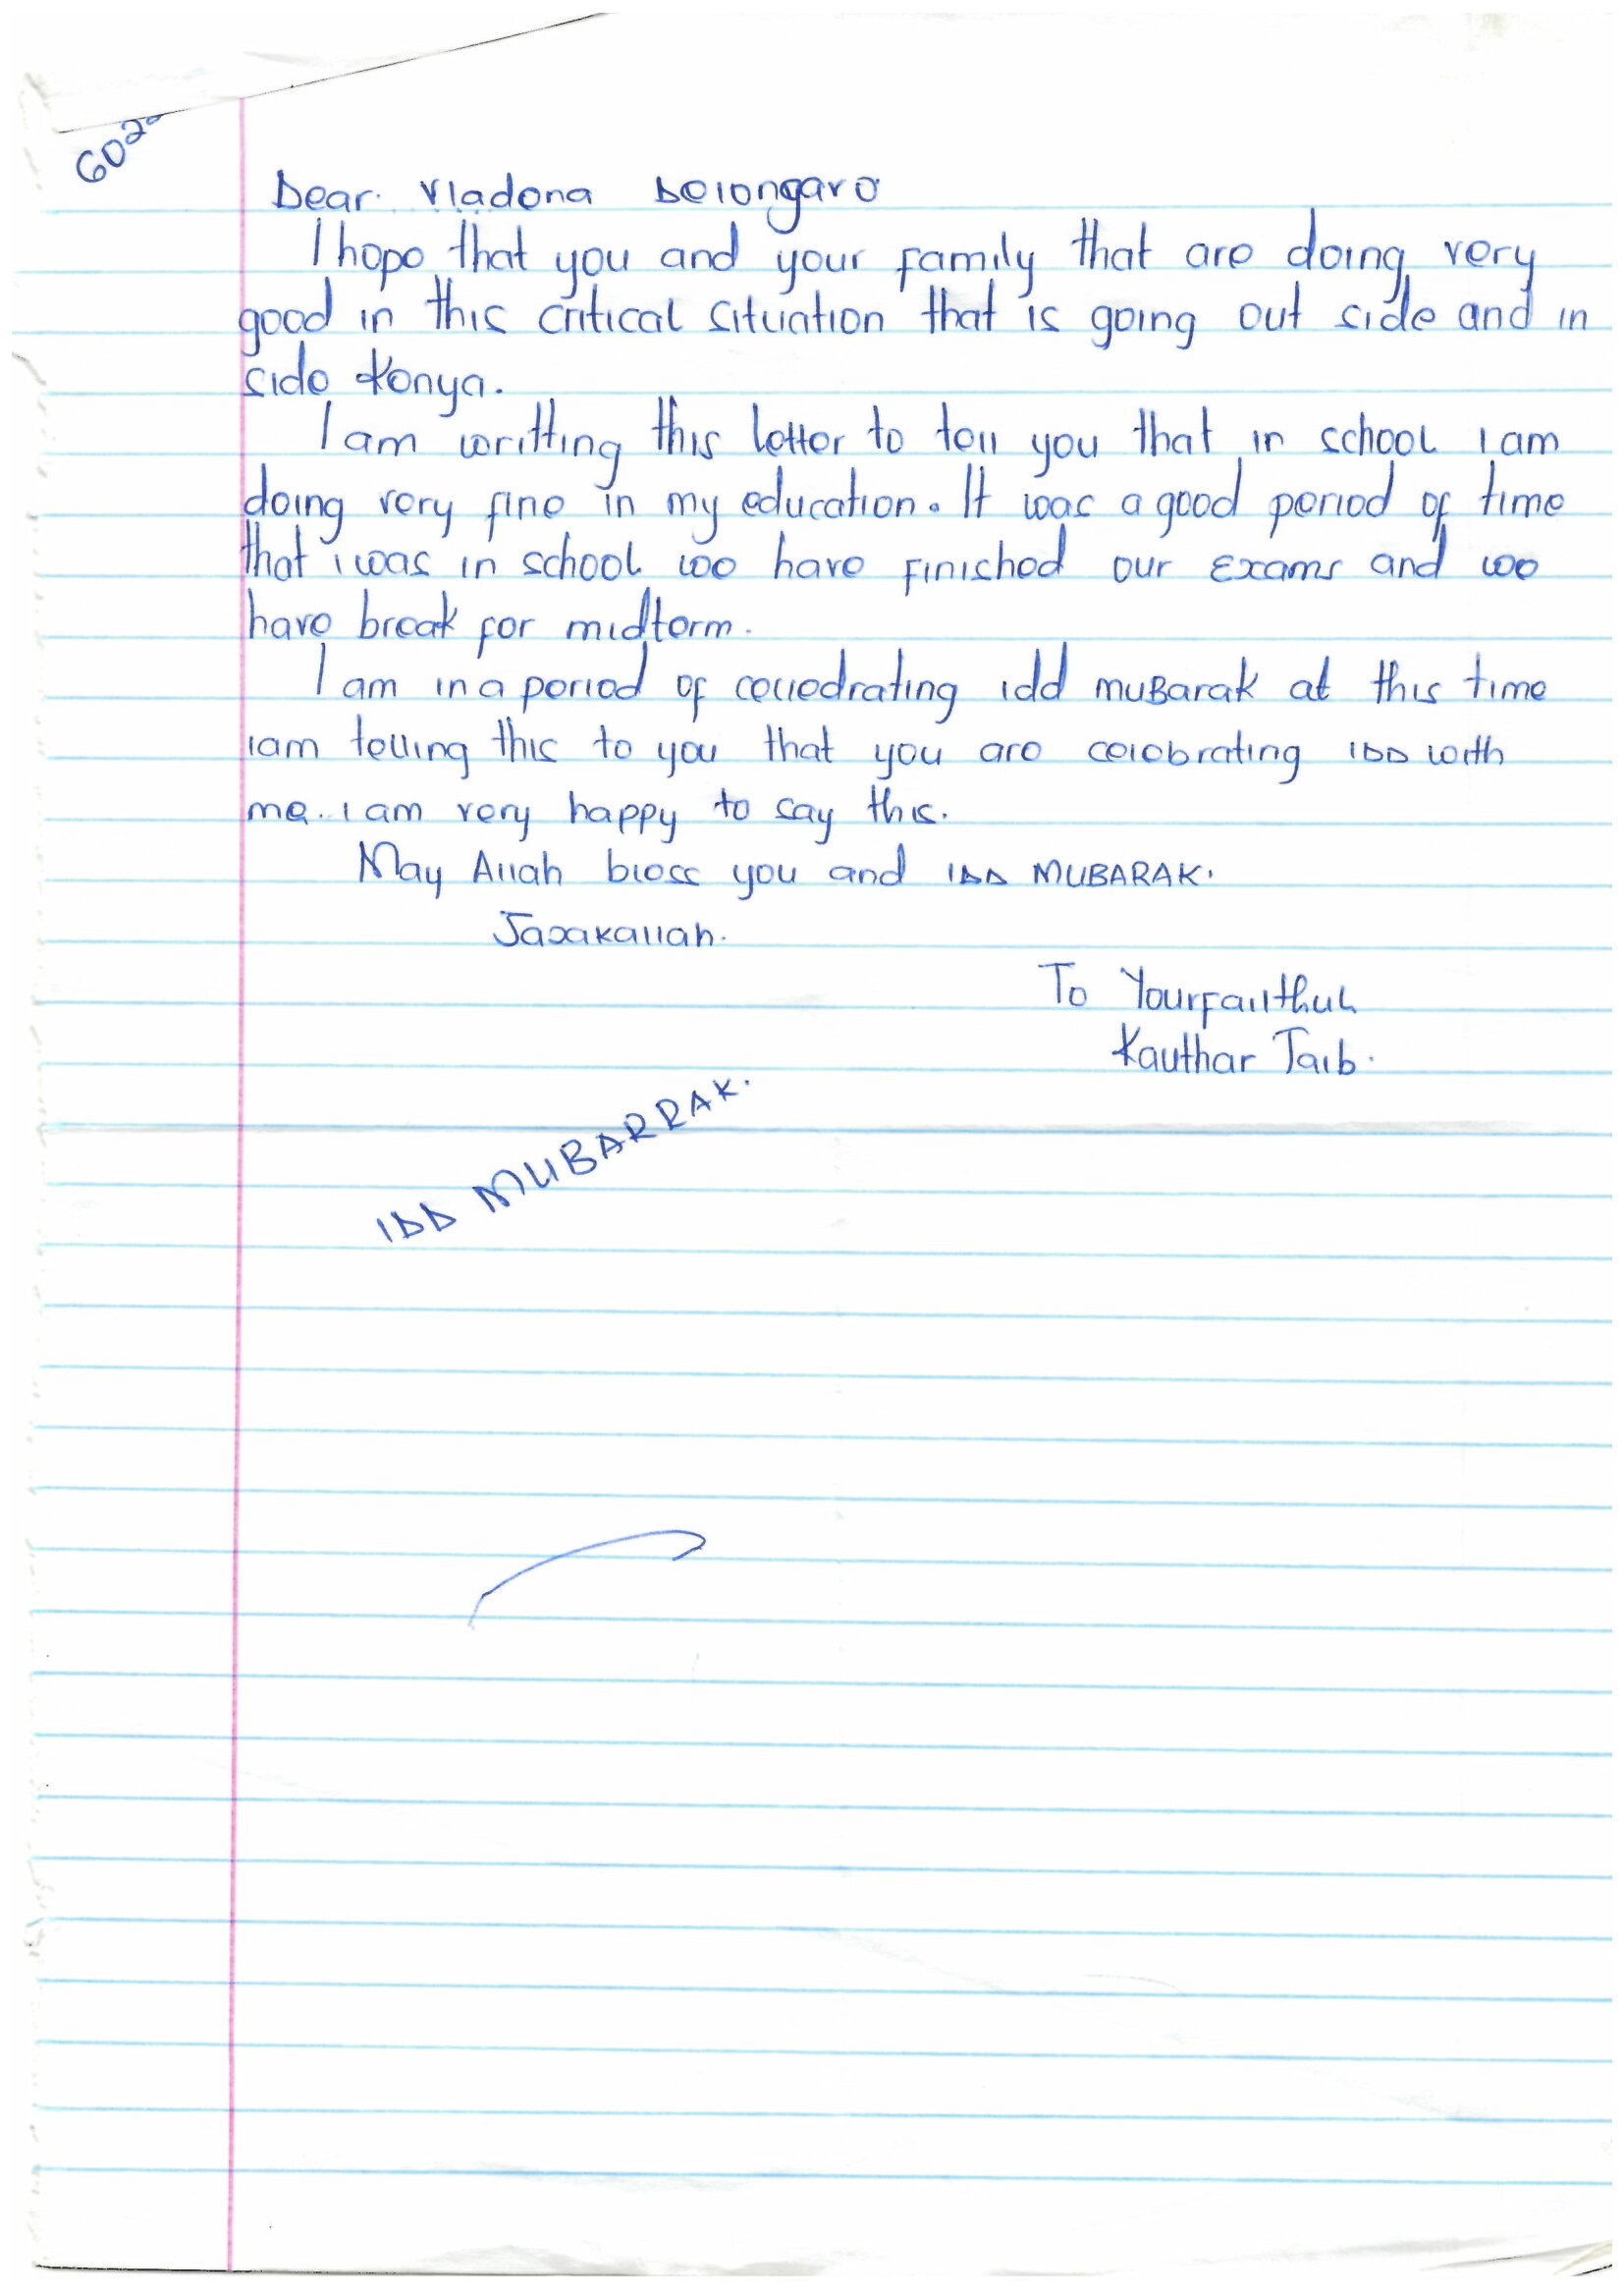 602
Dear. Vladena Delongaro
I hope that you and your family that are doing very
good in this critical situation that is going out side and in
side Kenya.
I am writting this letter to tell you that in school I am
doing very fine in my education. It was a good period of time
that i was in school we have finished our Exams and we
have break for midterm.
I am in a period of celledrating idd muBarak at this time
iam telling this to you that you are celebrating IDD with
me. I am very happy to say this.
May Allah bless you and IDD MUBARAK.
Jazakallah.
To Yourfaithful
Kauthar Taib.
IDD MUBARRAK.